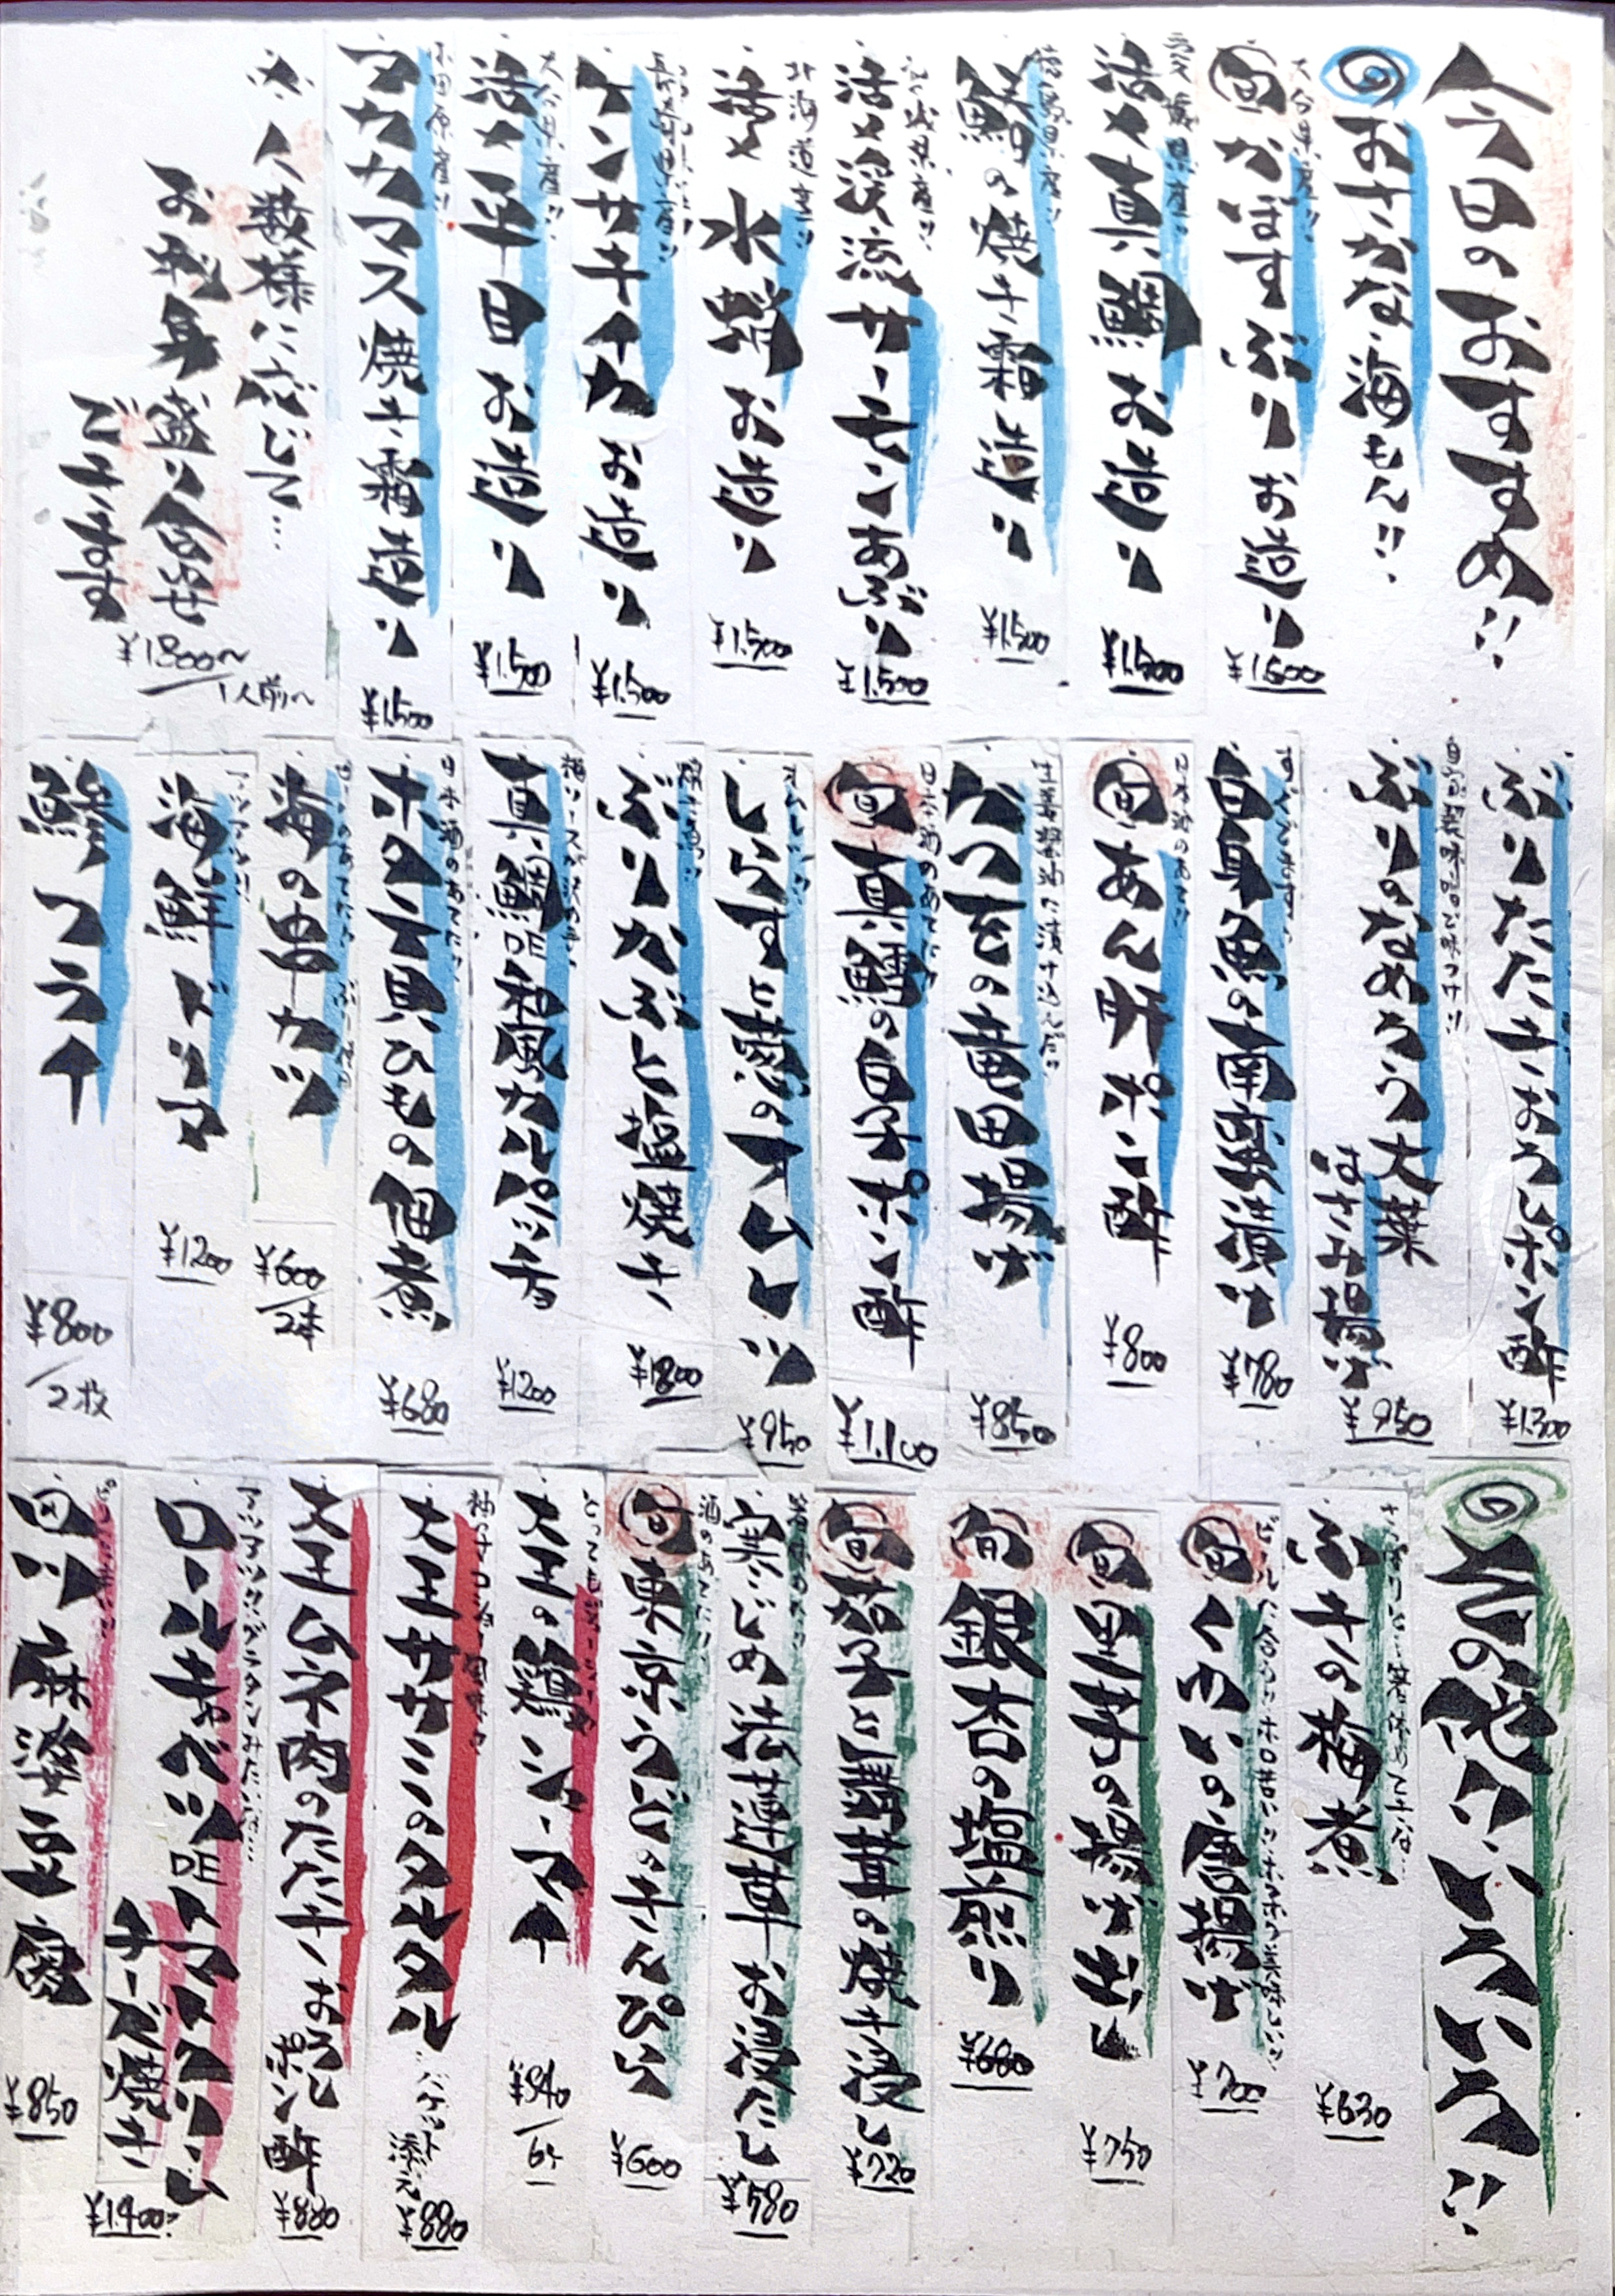 今日のおすすめ!!
おさかな・海もん!!
大分県産!!
旬 かぼすぶり お造り
¥1.500
愛媛県産!!
活〆真鯛 お造り
¥1.500
徳島県産!!
の焼き霜造り
¥1.500
宮城県産!!
活〆渓流サーモンあぶり
¥1.500
北海道産!!
活〆 水蛸 お造り
¥1.500
長崎県産!!
ケンサキイカ お造り
¥1.500
大分県産!!
活〆平目 お造り
¥1.500
小田原産!!
マカカマス焼き霜造り
¥1.500
人数様に応じて…
お刺身盛り合せ
できます
¥1800〜
1人前〜
ぶりたたき おろしポン酢
¥1.300
自家製味噌で味つけ!!
ぶりのなめろう大葉
はさみ揚げ
¥950
白身魚の南蛮漬け
¥780
日本酒のあて!!
旬 あん肝ポン酢
¥800
生姜醤油に漬け込んだ!!
かつをの竜田揚げ
¥850
日本酒のあてに!!
旬 真鱈の白子ポン酢
¥1.100
しらすと葱のオムレツ
¥950
ぶりかぶと塩焼き
¥1800
真鯛DE和風カルパッチョ
¥1200
日本酒のあてに!!
ホタテ貝ひもの佃煮
¥680
海の串カツ
¥600/2本
海鮮ドリア
¥1200
鯵フライ
¥800/2枚
その他いろいろ!!
さっぱりと…箸休めて下さいな…
ふきの梅煮
¥630
ビールに合う!!ホロ苦い!!ホクホク美味しい!!
旬 くわいの唐揚げ
¥700
旬 里芋の揚げ出し
¥750
旬 銀杏の塩煎り
¥680
旬 茄子と舞茸の焼き浸し
¥720
箸休めに!!
寒じめ法蓮草お浸たし
¥580
酒のあてに!!
旬 東京うどのきんぴら
¥600
とってもジューシー
大王の鶏シューマイ
¥840/6ケ
大王ササミのタルタル
バケット添え
¥880
大王ムネ肉のたたき おろしポン酢
¥880
アツアツ!!グラタンみたいな…
ロールキャベツDEトマトクリーム
チーズ焼き
¥1.400
四川麻婆豆腐
¥850